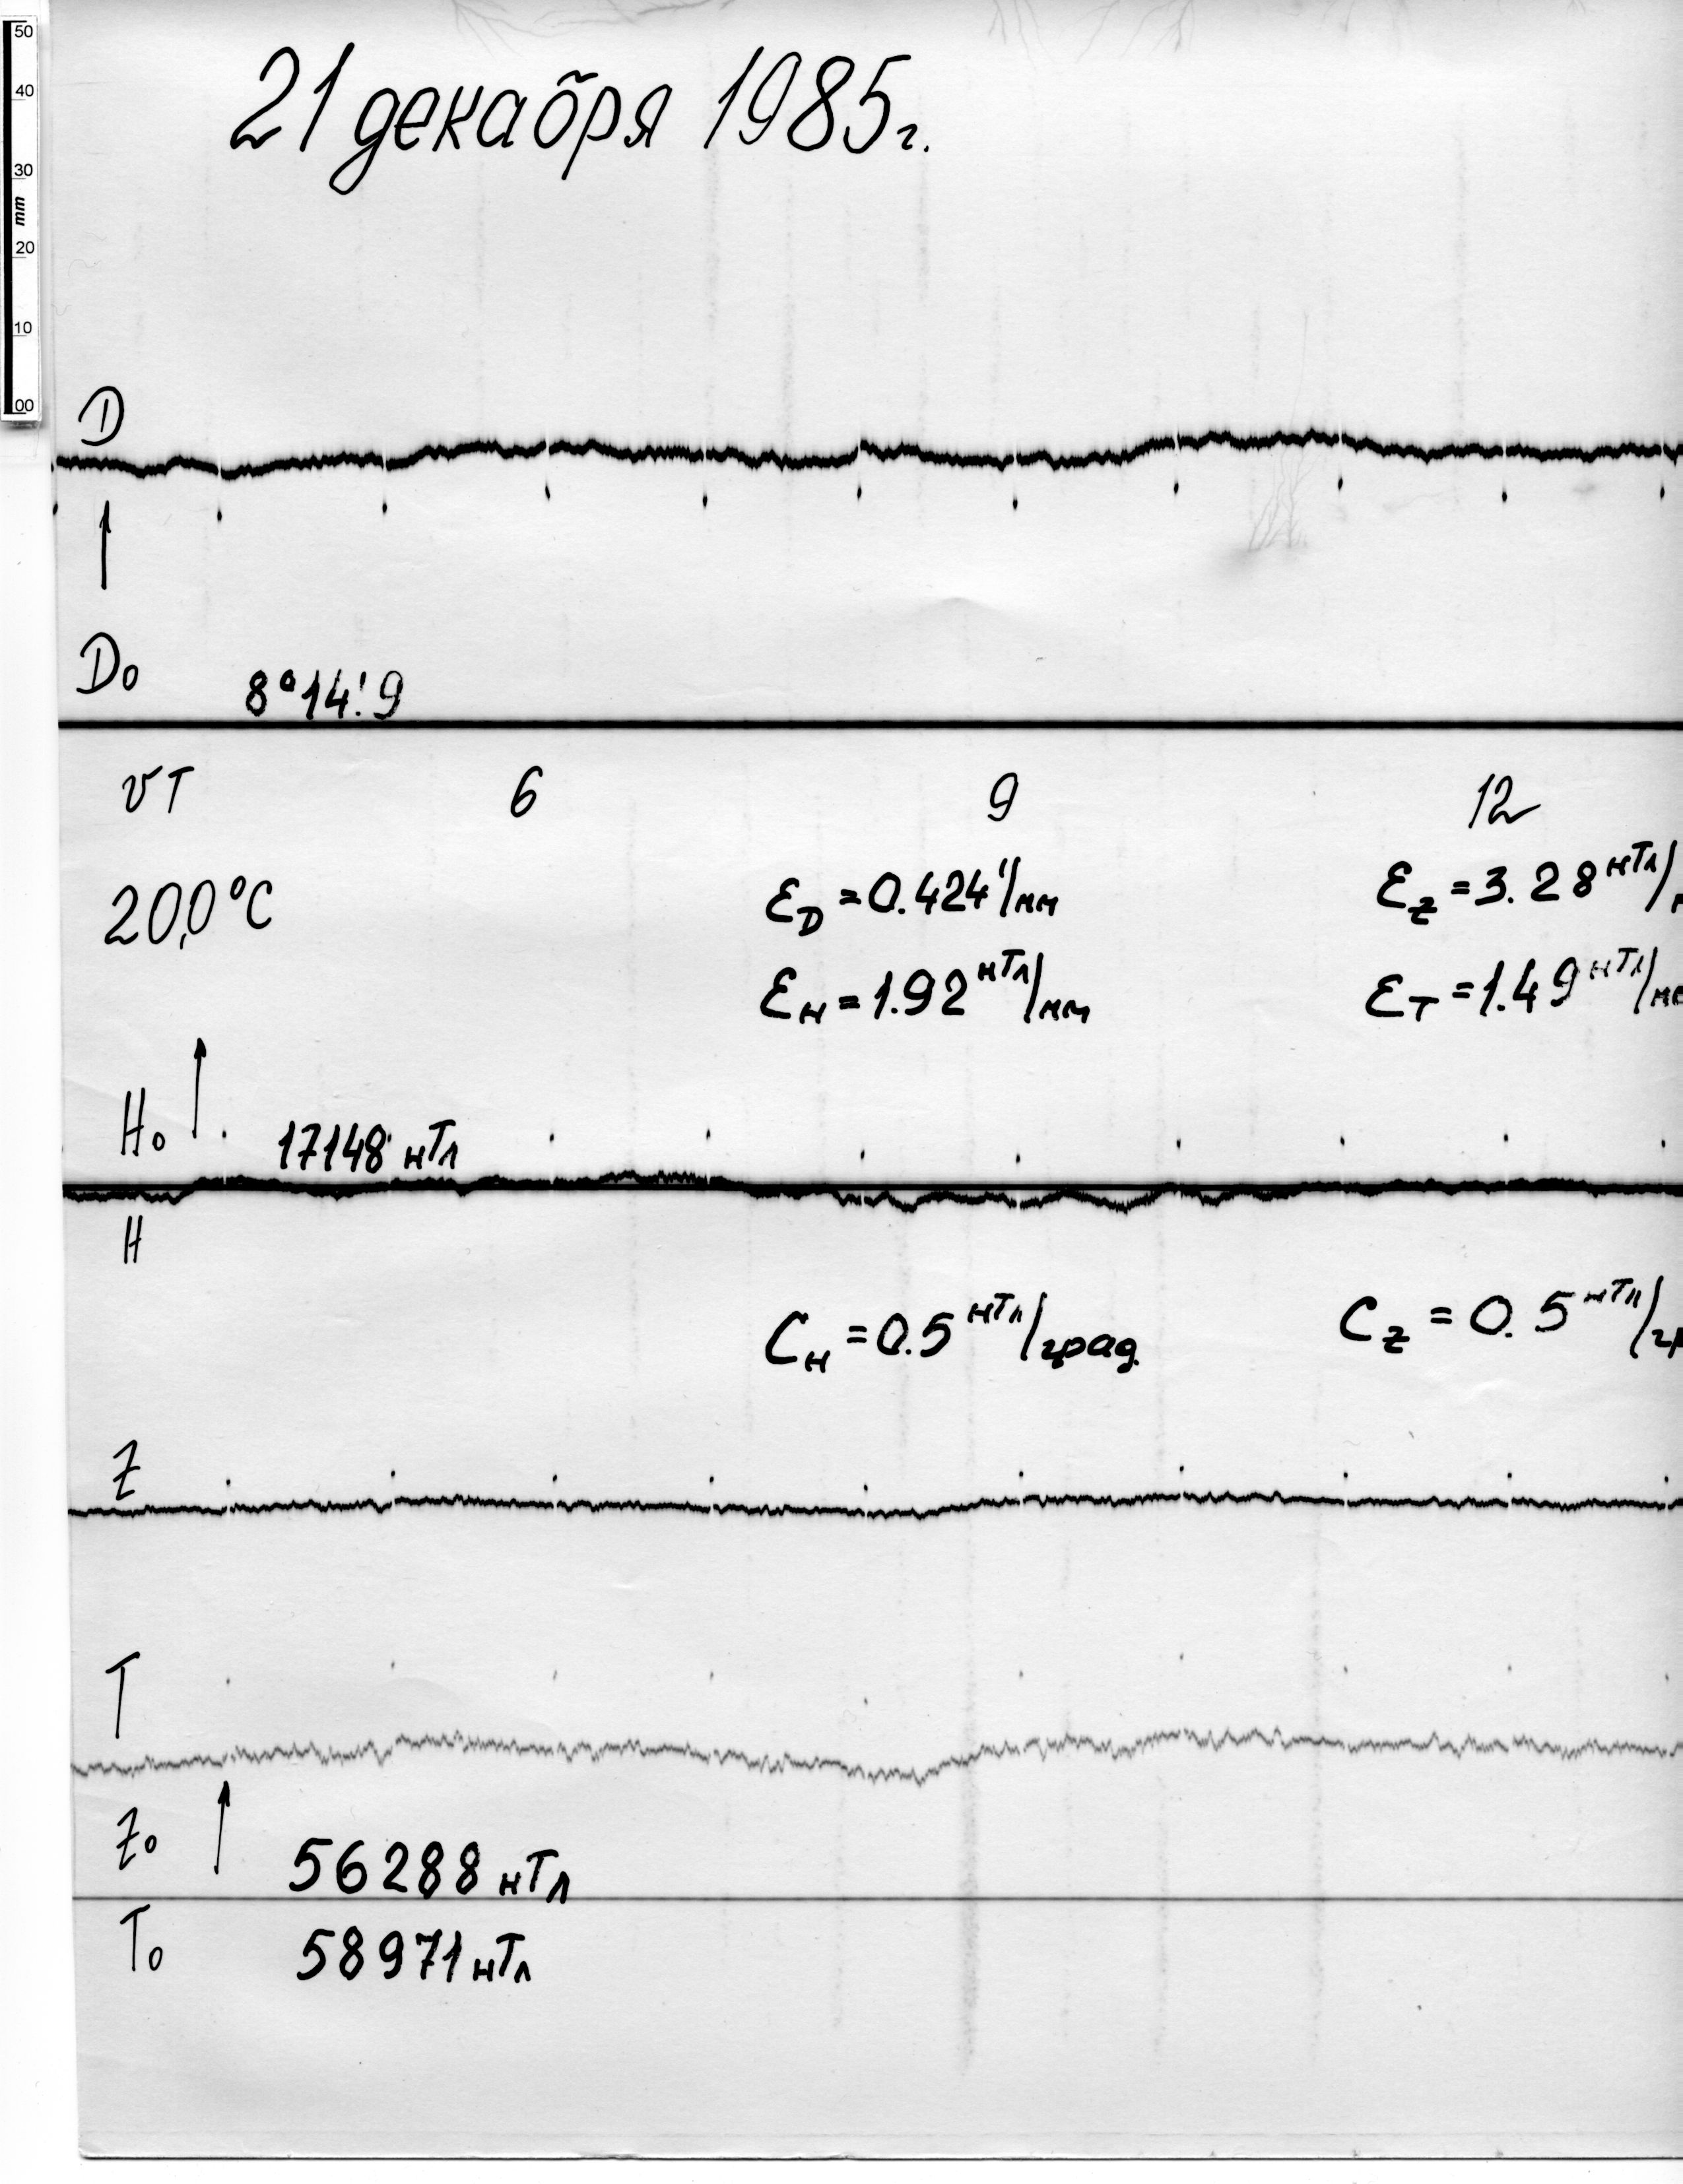 50
40
30
mm
20
10
00
21 декабря 1985г.
D
D₀ 8°14!9
UT 6 9 12
20,0°C
ε_D = 0.424'/мм ε_Z = 3.28 нТл/
ε_H = 1.92 нТл/мм ε_T = 1.49 нТл/мм
H₀ 17148 нТл
H
C_H = 0.5 нТл/град. C_Z = 0.5 нТл/гр
Z
T
Z₀ 56288 нТл
T₀ 58971 нТл